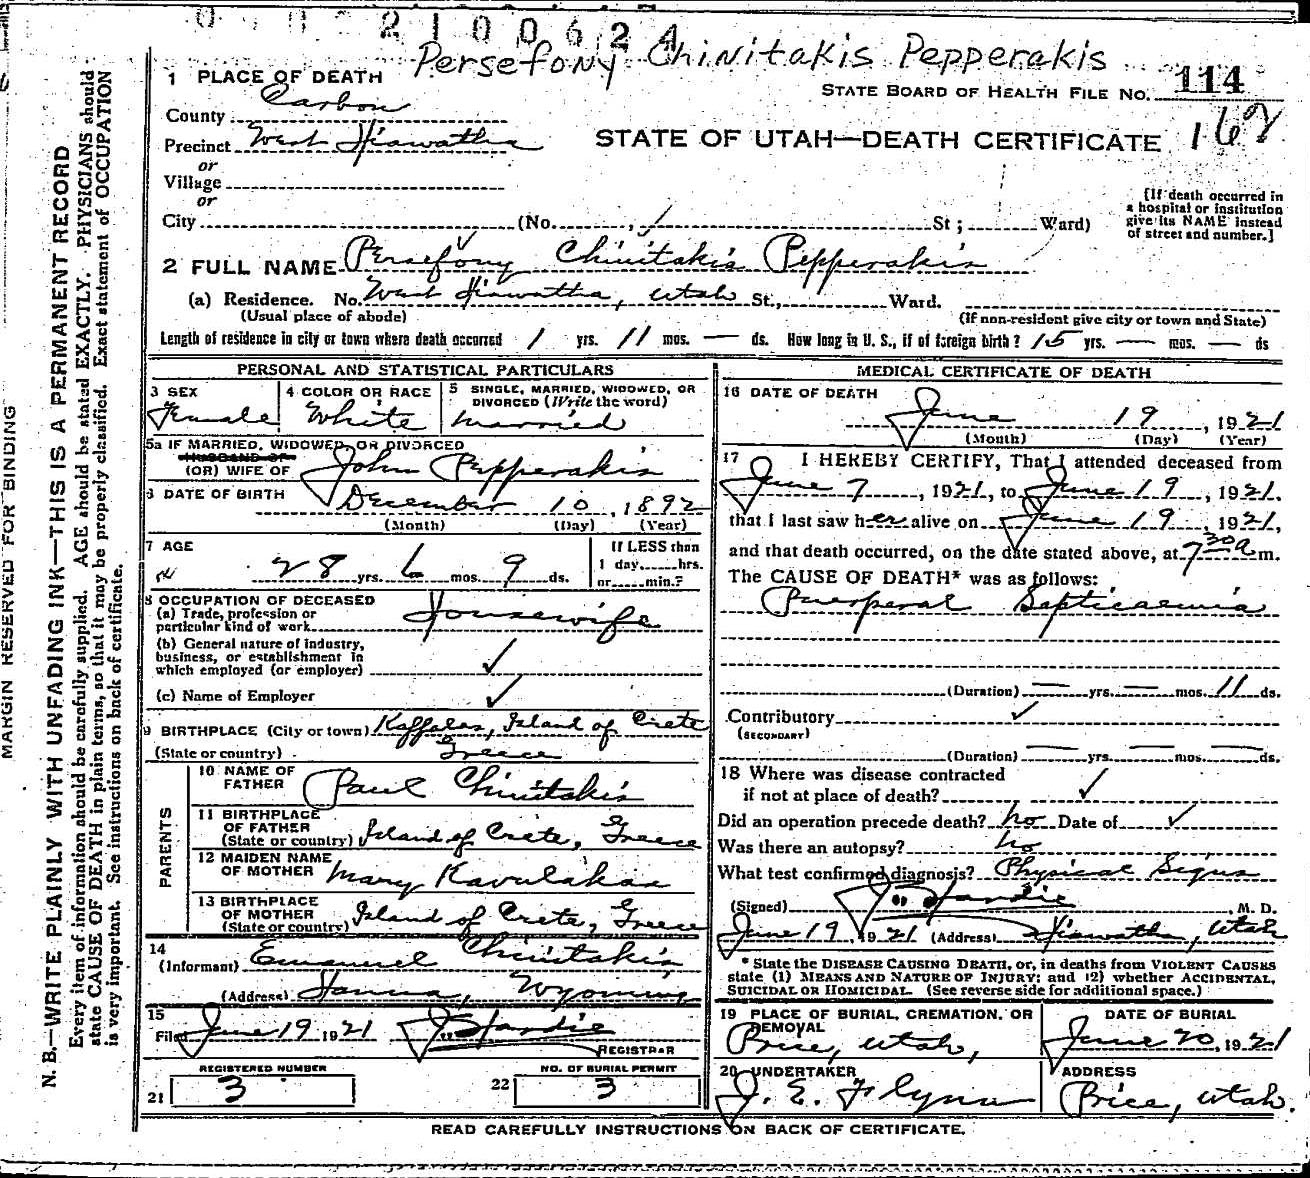 2100624
Persefony Chinitakis Pepperakis
1 PLACE OF DEATH
STATE BOARD OF HEALTH FILE No. 114
County Carbon
Precinct West Hiawatha
STATE OF UTAH—DEATH CERTIFICATE 162
or
Village
or
City (No. St; Ward)
[If death occurred in
a hospital or institution
give its NAME instead
of street and number.]
2 FULL NAME Persefony Chinitakis Pepperakis
(a) Residence. No. West Hiawatha, Utah St., Ward.
(Usual place of abode) (If non-resident give city or town and State)
Length of residence in city or town where death occurred 1 yrs. 11 mos. — ds. How long in U. S., if of foreign birth? 15 yrs. — mos. — ds
PERSONAL AND STATISTICAL PARTICULARS
3 SEX
Female
4 COLOR OR RACE
White
5 SINGLE, MARRIED, WIDOWED, OR
DIVORCED (Write the word)
Married
5a IF MARRIED, WIDOWED, OR DIVORCED
HUSBAND OF
(OR) WIFE OF John Pepperakis
6 DATE OF BIRTH December 10, 1892
(Month) (Day) (Year)
7 AGE
28 yrs. 6 mos. 9 ds.
If LESS than
1 day,......hrs.
or......min.?
8 OCCUPATION OF DECEASED
(a) Trade, profession or
particular kind of work Housewife
(b) General nature of industry,
business, or establishment in
which employed (or employer) ✓
(c) Name of Employer ✓
9 BIRTHPLACE (City or town) Kaffales, Island of Crete
(State or country) Greece
PARENTS
10 NAME OF
FATHER Paul Chinitakis
11 BIRTHPLACE
OF FATHER
(State or country) Island of Crete, Greece
12 MAIDEN NAME
OF MOTHER Mary Kavulakas
13 BIRTHPLACE
OF MOTHER
(State or country) Island of Crete, Greece
14
(Informant) Emanuel Chinitakis
(Address) Hanna, Wyoming
15
Filed June 19 1921 J. Hardie
REGISTRAR
REGISTERED NUMBER
21 3
NO. OF BURIAL PERMIT
22 3
MEDICAL CERTIFICATE OF DEATH
16 DATE OF DEATH
June 19, 1921
(Month) (Day) (Year)
17 I HEREBY CERTIFY, That I attended deceased from
June 7, 1921, to June 19, 1921,
that I last saw her alive on June 19, 1921,
and that death occurred, on the date stated above, at 7 30 a m.
The CAUSE OF DEATH* was as follows:
Puerperal Septicaemia
(Duration) — yrs. — mos. 11 ds.
Contributory ✓
(SECONDARY)
(Duration) — yrs. — mos. — ds.
18 Where was disease contracted
if not at place of death? ✓
Did an operation precede death? no Date of ✓
Was there an autopsy? no
What test confirmed diagnosis? Physical Signs
(Signed) J. Hardie, M. D.
June 19, 1921 (Address) Hiawatha, Utah
* State the DISEASE CAUSING DEATH, or, in deaths from VIOLENT CAUSES
state (1) MEANS AND NATURE OF INJURY; and (2) whether ACCIDENTAL,
SUICIDAL OR HOMICIDAL. (See reverse side for additional space.)
19 PLACE OF BURIAL, CREMATION, OR
REMOVAL
Price, Utah,
DATE OF BURIAL
June 20, 1921
20 UNDERTAKER
J. E. Flynn
ADDRESS
Price, Utah.
READ CAREFULLY INSTRUCTIONS ON BACK OF CERTIFICATE.
MARGIN RESERVED FOR BINDING
N. B.—WRITE PLAINLY WITH UNFADING INK—THIS IS A PERMANENT RECORD
Every item of information should be carefully supplied. AGE should be stated EXACTLY. PHYSICIANS should
state CAUSE OF DEATH in plain terms, so that it may be properly classified. Exact statement of OCCUPATION
is very important. See instructions on back of certificate.